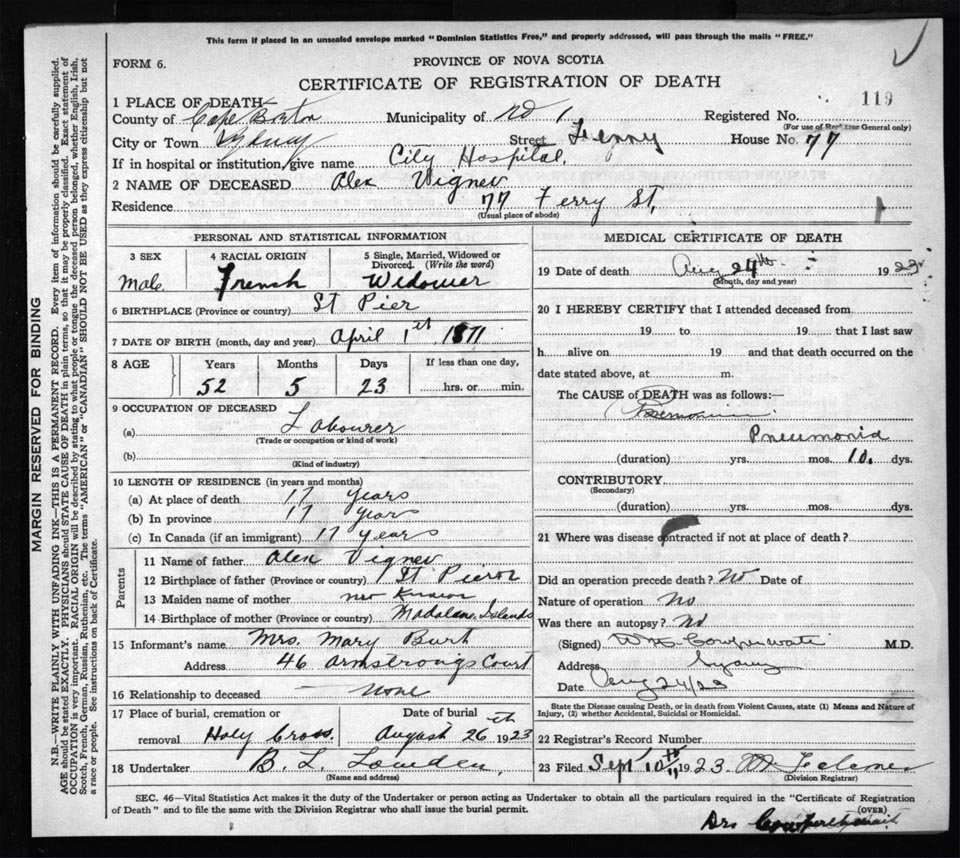 This form if placed in an unsealed envelope marked "Dominion Statistics Free," and properly addressed, will pass through the mails "FREE."
FORM 6.
PROVINCE OF NOVA SCOTIA
CERTIFICATE OF REGISTRATION OF DEATH
119
1 PLACE OF DEATH—
County of Cape Breton Municipality of No 1 Registered No.
(For use of Registrar General only)
City or Town Sydney Street Ferry House No. 77
If in hospital or institution, give name City Hospital,
2 NAME OF DECEASED Alex Vignev
Residence 77 Ferry St,
(Usual place of abode)
PERSONAL AND STATISTICAL INFORMATION
3 SEX 4 RACIAL ORIGIN 5 Single, Married, Widowed or Divorced. (Write the word)
Male. French Widower
6 BIRTHPLACE (Province or country) St Pier
7 DATE OF BIRTH (month, day and year) April 1st 1871
8 AGE Years Months Days If less than one day,
52 5 23 hrs. or min.
9 OCCUPATION OF DECEASED
(a) Labourer
(Trade or occupation or kind of work)
(b)
(Kind of industry)
10 LENGTH OF RESIDENCE (in years and months)
(a) At place of death 17 years
(b) In province 17 years
(c) In Canada (if an immigrant) 17 years
Parents
11 Name of father Alex Vignev
12 Birthplace of father (Province or country) St Pieror
13 Maiden name of mother
14 Birthplace of mother (Province or country) Madalane Islands
15 Informant's name Mrs. Mary Burt
Address 46 Armstrongs Court
16 Relationship to deceased none
17 Place of burial, cremation or Date of burial
removal Holy Cross. August 26th 1923
18 Undertaker B. L. Lowden,
(Name and address)
MEDICAL CERTIFICATE OF DEATH
19 Date of death Aug 24th 1923
(Month, day and year)
20 I HEREBY CERTIFY that I attended deceased from
19 to 19 that I last saw
h alive on 19 and that death occurred on the
date stated above, at m.
The CAUSE of DEATH was as follows:—
Pneumonia
(duration) yrs. mos. 10. dys.
CONTRIBUTORY
(Secondary)
(duration) yrs. mos. dys.
21 Where was disease contracted if not at place of death?
Did an operation precede death? No Date of
Nature of operation No
Was there an autopsy? No
(Signed) M.D.
Address Sydney
Date Aug 24/23
State the Disease causing Death, or in death from Violent Causes, state (1) Means and Nature of
Injury, (2) whether Accidental, Suicidal or Homicidal.
22 Registrar's Record Number
23 Filed Sept 10th 1923
(Division Registrar)
SEC. 46—Vital Statistics Act makes it the duty of the Undertaker or person acting as Undertaker to obtain all the particulars required in the "Certificate of Registration
of Death" and to file the same with the Division Registrar who shall issue the burial permit.
(OVER)
MARGIN RESERVED FOR BINDING
N.B.—WRITE PLAINLY WITH UNFADING INK—THIS IS A PERMANENT RECORD. Every item of information should be carefully supplied.
AGE should be stated EXACTLY. PHYSICIANS should STATE CAUSE OF DEATH in plain terms, so that it may be properly classified. Exact statement of
OCCUPATION is very important. RACIAL ORIGIN will be described by stating to what people or tongue the deceased person belonged, whether English, Irish,
Scotch, French, German, Russian, Ruthenian, etc. The terms "AMERICAN" or "CANADIAN" SHOULD NOT BE USED as they express citizenship but not
a race or people. See instructions on back of Certificate.